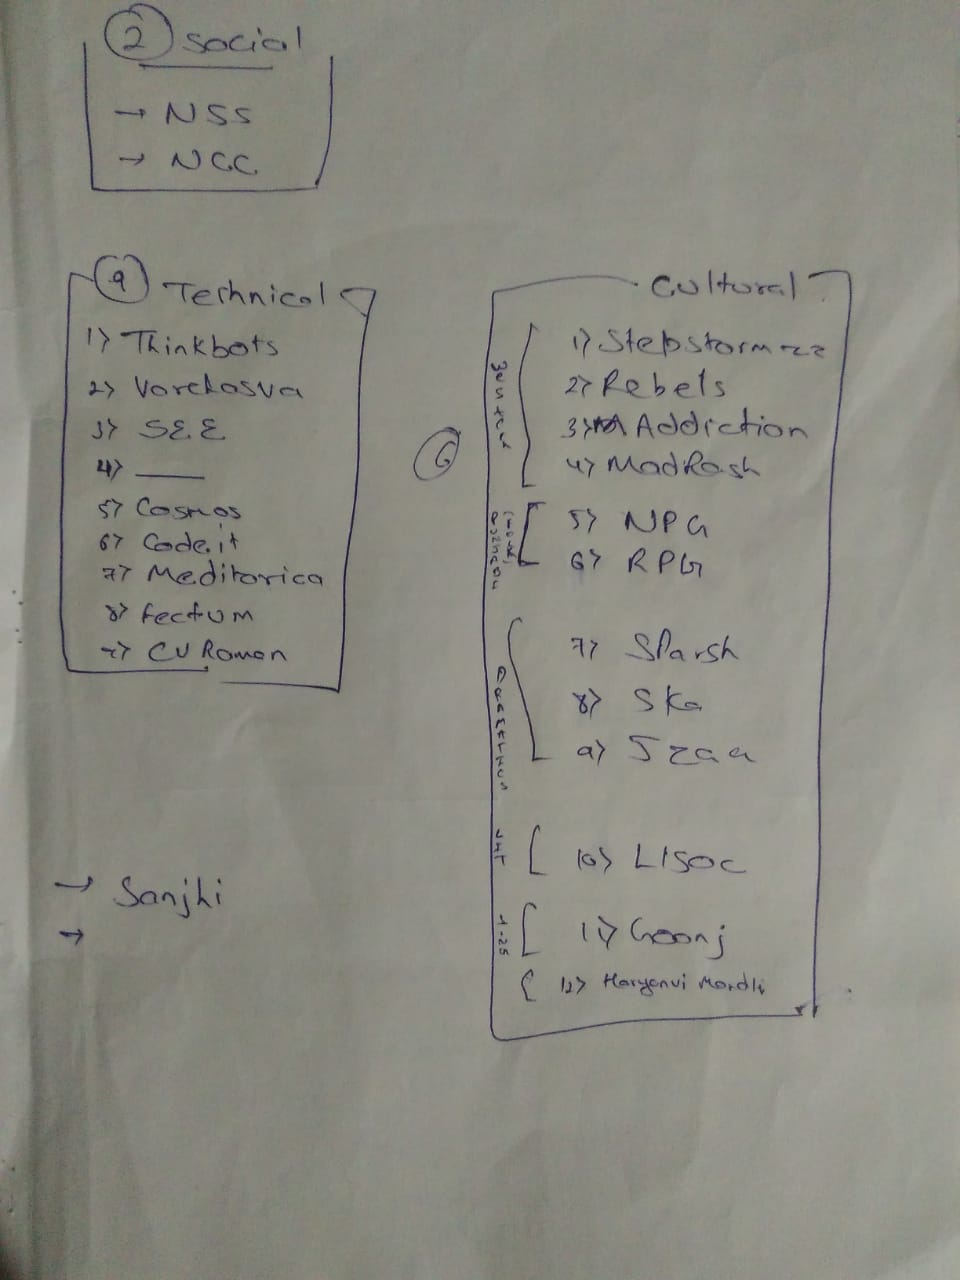 2 Social
→ NSS
→ NCC
9 Technical
1) Thinkbots
2) Varchasva
3) SEE
4) ____
5) Cosmos
6) Code.it
7) Meditorica
8) fectum
9) CV Raman
→ Sanjhi
→
6
Cultural
1) Stepstormzz
2) Rebels
3) Addiction
4) MadRash
5) NPG
6) RPG
7) SParsh
8) Ska
9) Izaa
10) LISOC
11) Goonj
12) Haryanvi Mandli